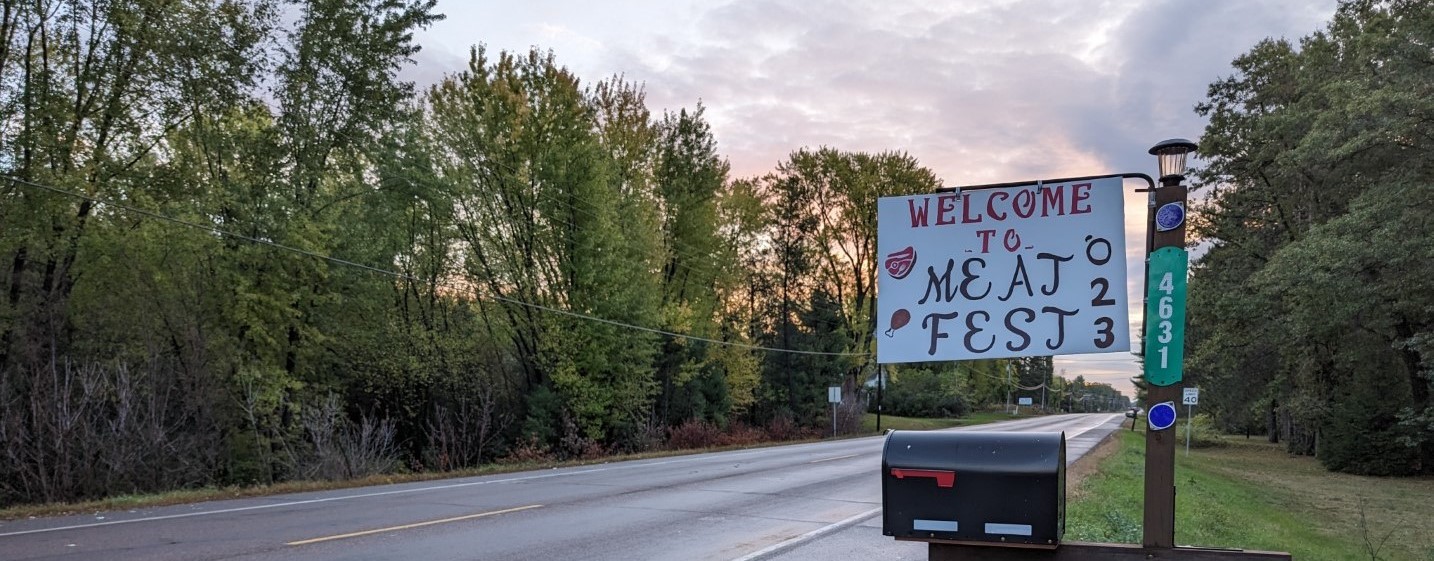 WELCOME
TO
MEAT
FEST
'023
4631
40